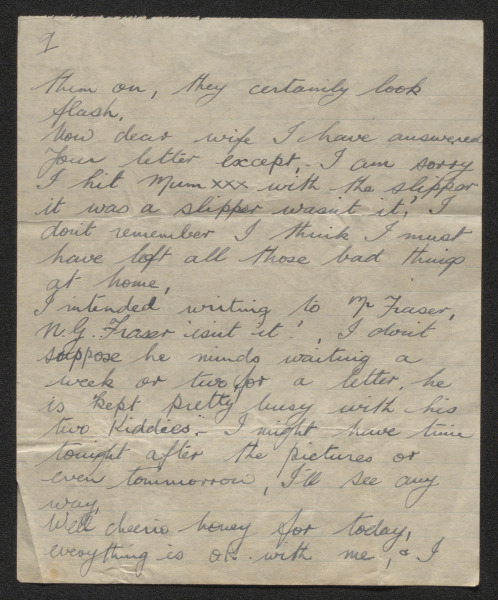 7
them on, they certainily look
flash.
Now dear wife I have answered
your letter except, I am sorry
I hit Mum xxx with the slipper
it was a slipper wasnt it, I
dont remember I think I must
have left all those bad things
at home,
I intended writing to Mr Fraser,
N.G. Fraser isnt it!, I dont
suppose he minds waiting a
week or two, for a letter, he
is kept pretty busy with his
two Kiddies. I might have time
tonight after the pictures or
even tommorrow, I'll see any
way,
Well cheerio honey for today,
everything is ok. with me, & I